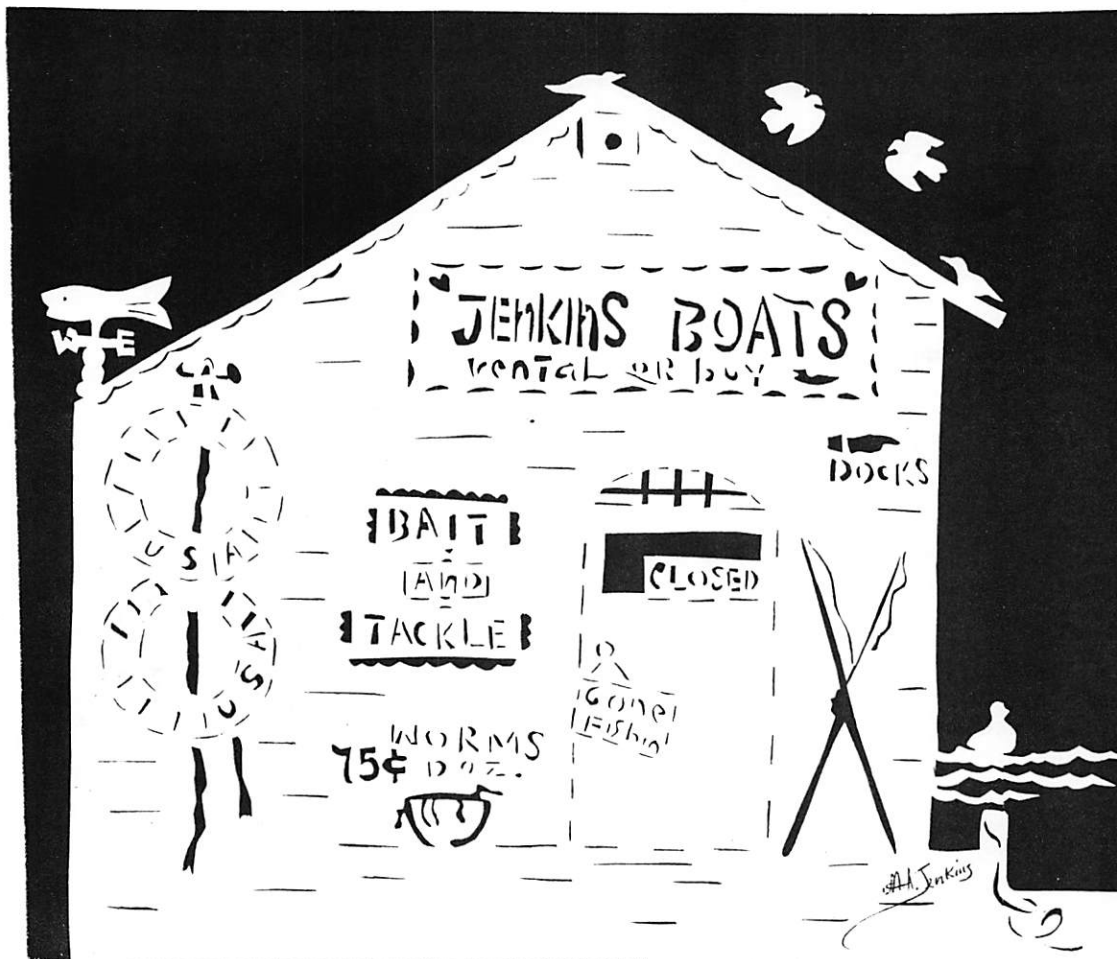 JEnKInS BOATS
renTaL OR buY
W E
DOCKS
USA
USA
BAIT
AND
TACKLE
CLOSED
Gone
Fishin
WORMS
75¢ DOZ.
A. Jenkins